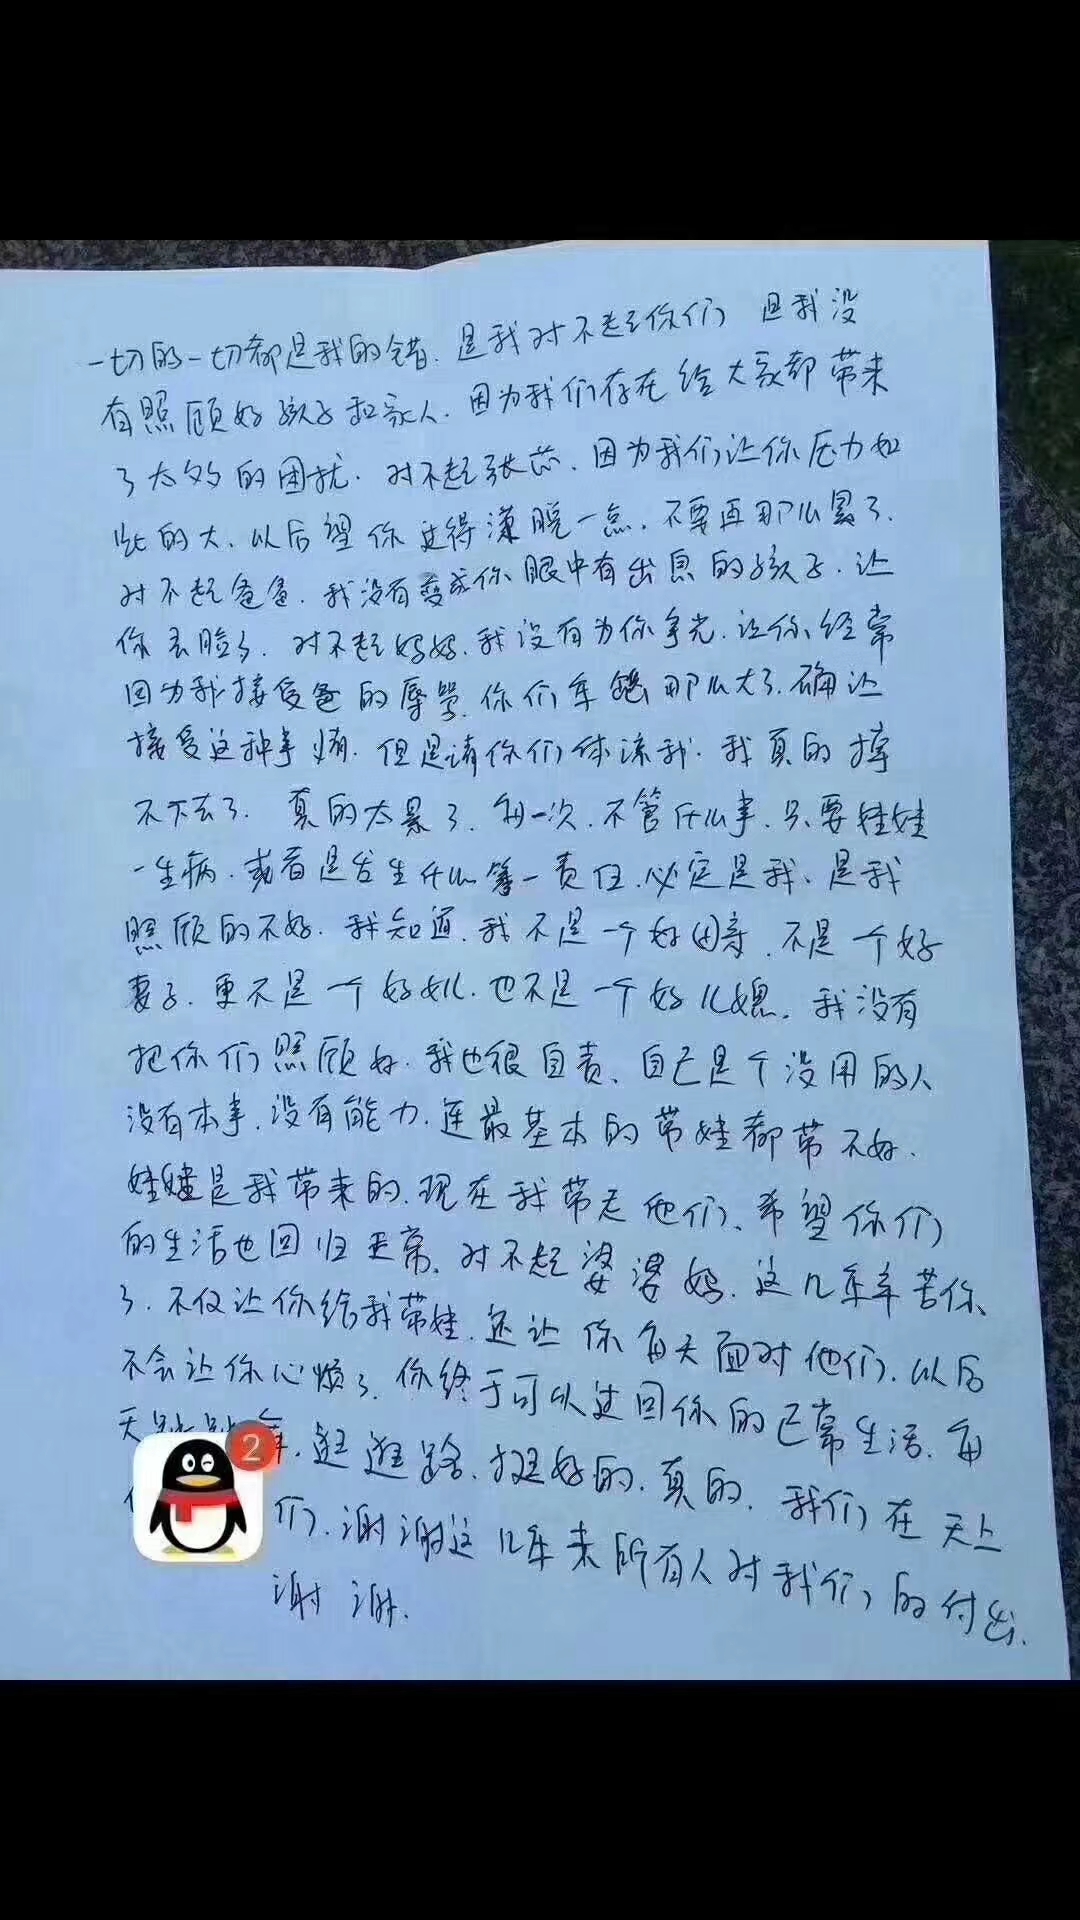 一切的一切都是我的错.是我对不起你们 是我没
有照顾好孩子和家人.因为我们存在给大家都带来
了太多的困扰.对不起张.因为我们让你压力如
此的大.以后望你过得潇脱一点.不要再那么累了.
对不起爸爸.我没有变成你眼中有出息的孩子.让
你丢脸了.对不起妈妈.我没有为你争光.让你经常
因为我接受爸的辱骂.你们年龄那么大了.确让
接受这种事情.但是请你们体谅我.我真的撑
不下去了.真的太累了.每一次.不管什么事.只要娃娃
一生病.或者是发生什么第一责任.必定是我.是我
照顾的不好.我知道.我不是一个好母亲.不是一个好
妻子.更不是一个好女儿.也不是一个好儿媳.我没有
把你们照顾好.我也很自责、自己是个没用的人
没有本事.没有能力.连最基本的带娃都带不好.
娃娃是我带来的.现在我带走他们、希望你们
的生活也回归正常.对不起婆婆妈.这几年辛苦你
了.不仅让你给我带娃.还让你每天面对他们.以后
不会让你心烦了.你终于可以过回你的正常生活.每
天.逛逛路.挺好的.真的.我们在天上
们.谢谢这几年来所有人对我们的付出.
谢谢.
2